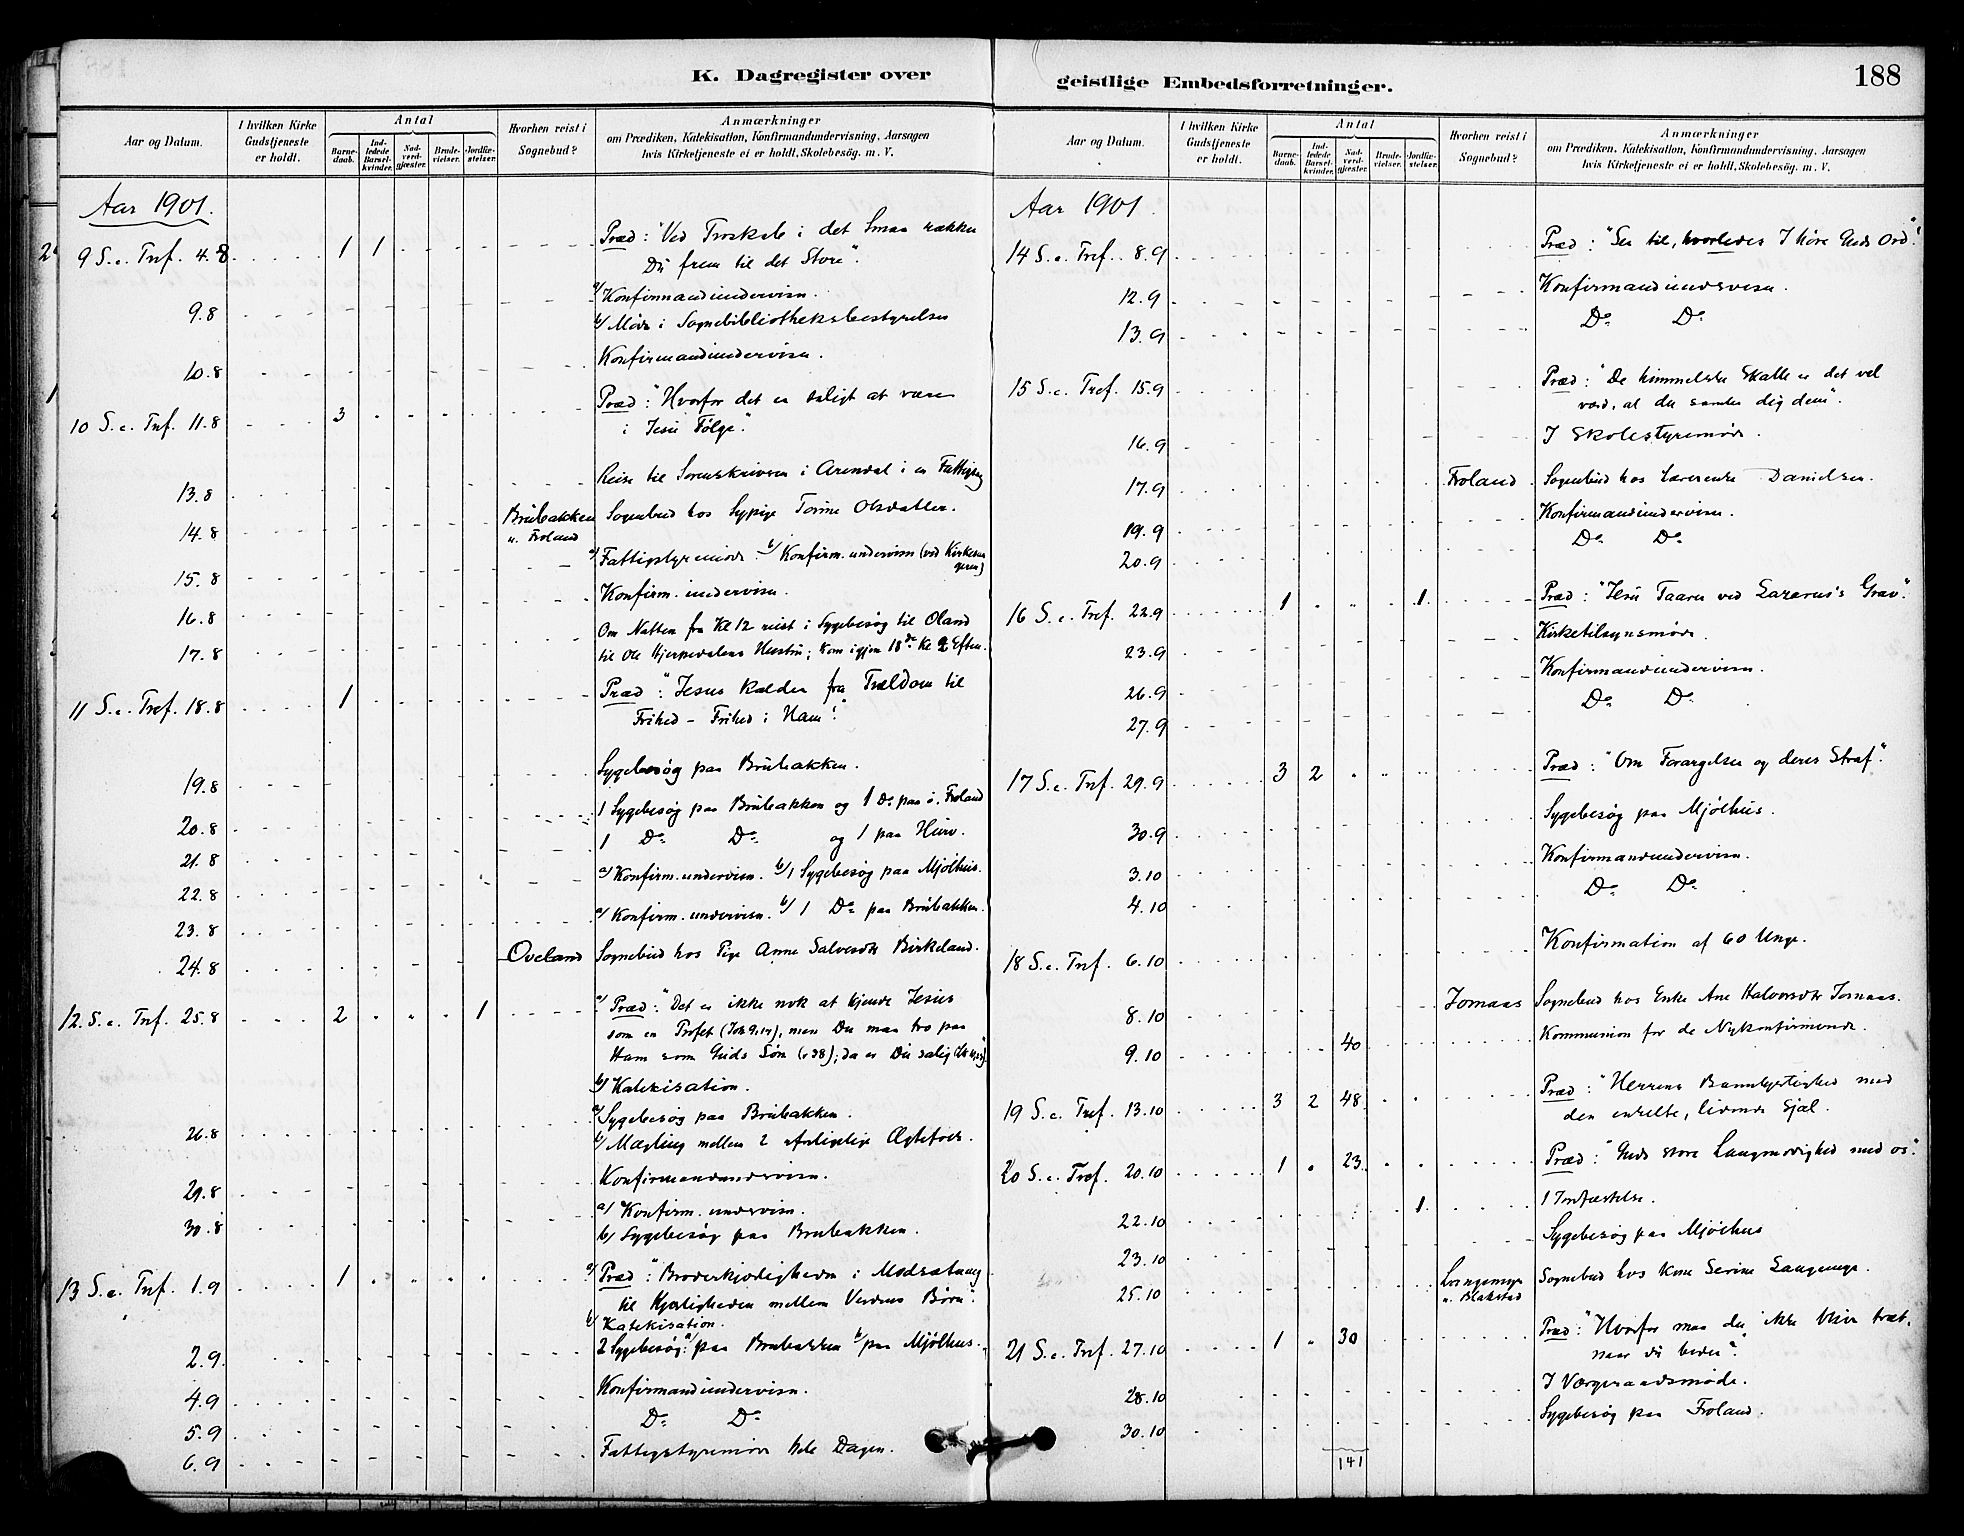 K. Dagregister over
geistlige Embedsforretninger.
188
Aar og Datum.
I hvilken Kirke Gudstjeneste er holdt.
Antal
Barnedaab.
Indledede Barselkvinder.
Nadverdgjester.
Brudevielser.
Jordfæstelser.
Hvorhen reist i Sognebud?
Anmærkninger
om Prædiken, Katekisation, Konfirmandundervisning, Aarsagen
hvis Kirketjeneste ei er holdt, Skolebesøg. m. V.
Aar 1901.
9 S. e. Tref. 4.8 1 1 Præd: "Ved Troskab i det Smaa rækker
Du frem til det Store".
9.8 a/ Konfirmandundervisn.
b/ Møde i Sognebibliotheksbestyrelse
10.8 Konfirmandundervisn.
10 S. e. Tref. 11.8 3 Præd: "Hvorfor det er saligt at være
i Jesu Følge".
13.8 Reise til Sorenskriveren i Arendal i en Fattigsag
14.8 Brubakken u. Froland Sognebud hos Sypige Torine Olsdatter.
15.8 a/ Fattigstyremøde b/ Konfirm. undervisn (ved Kirkesangeren)
16.8 Konfirm. undervisn.
17.8 Om Natten fra Kl 12 reist i Sygebesøg til Oland
til Ole Hjerkedalens Hustru; kom igjen 18de Kl 2 Efterm.
11 S. e. Tref. 18.8 1 Præd: "Jesus kalder fra Trældom til
Frihed - Frihed i Ham!"
19.8 Sygebesøg paa Brubakken.
20.8 1 Sygebesøg paa Brubakken og 1 Do paa ö. Froland
21.8 1 Do Do og 1 paa Hurv.
22.8 a/ Konfirm. undervisn. b/ 1 Sygebesøg paa Mjølhus.
23.8 a/ Konfirm. undervisn. b/ 1 Do paa Brubakken.
24.8 Oveland Sognebud hos Pige Anne Salvesdtr Birkeland.
12. S. e. Tref. 25.8 2 1 a/ Præd: "Det er ikke nok at kjende Jesus
som en Profet (Joh 9,17), men Du maa tro paa
Ham som Guds Søn (v 38); da er Du salig
b/ Katekisation.
26.8 a/ Sygebesøg paa Brubakken.
b/ Mægling mellem 2 uforligelige Ægtefolk.
29.8 Konfirmandundervisn.
30.8 a/ Konfirm. undervisn.
b/ Sygebesøg paa Brubakken.
13 S. e. Tref. 1.9 1 a/ Præd: "Broderkjærligheden i Modsætning
til Kjærligheden mellem Verdens Børn".
b/ Katekisation.
2.9. 2 Sygebesøg: a/ paa Brubakken b/ paa Mjølhus.
4.9 Konfirmandundervisn.
5.9 Do Do
6.9 Fattigstyremøde hele Dagen.
Aar og Datum.
I hvilken Kirke Gudstjeneste er holdt.
Antal
Barnedaab.
Indledede Barselkvinder.
Nadverdgjester.
Brudevielser.
Jordfæstelser.
Hvorhen reist i Sognebud?
Anmærkninger
om Prædiken, Katekisation, Konfirmandundervisning, Aarsagen
hvis Kirketjeneste ei er holdt, Skolebesøg. m. V.
Aar 1901.
14 S. e. Tref. 8.9 Præd: "Se til, hvorledes I høre Guds Ord!"
12.9 Konfirmandundervisn.
13.9 Do Do
15 S. e. Tref. 15.9 Præd: "De himmelske Skatte er det vel
værd, at du samler dig dem".
16.9 I Skolestyremøde.
17.9 Froland Sognebud hos Lærerenke Danielsen.
19.9 Konfirmandundervisn.
20.9 Do Do
16 S. e. Tref. 22.9 1 1 Præd: "Jesu Taarer ved Lazarus's Grav".
23.9 Kirketilsynsmøde.
26.9 Konfirmandundervisn.
27.9 Do Do
17 S. e. Tref. 29.9 3 2 Præd: "Om Forargelse og deres Straf".
30.9 Sygebesøg paa Mjølhus.
3.10 Konfirmandundervisn.
4.10 Do Do
18 S. e. Tref. 6.10 Konfirmation af 60 Unge.
8.10 Jomaas Sognebud hos Enke Ane Halvorsdtr Jomaas.
9.10 40 Kommunion for de Nykonfirmerede.
19 S. e. Tref. 13.10 3 2 48 Præd: "Herrens Barmhjertighed med
den enkelte, lidende Sjæl.
20 S. e. Tref. 20.10 1 23 Præd: "Guds store Langmodighed med os".
22.10 1 1 Jordfæstelse.
23.10 Sygebesøg paa Mjølhus
25.10 u. Blakstad Sognebud hos Kone Serine
21 S. e. Tref. 27.10 1 30 Præd: "Hvorfor maa du ikke blive træt,
naar du beder".
28.10 I Værgeraadsmøde.
30.10 Sygebesøg paa Froland.
141